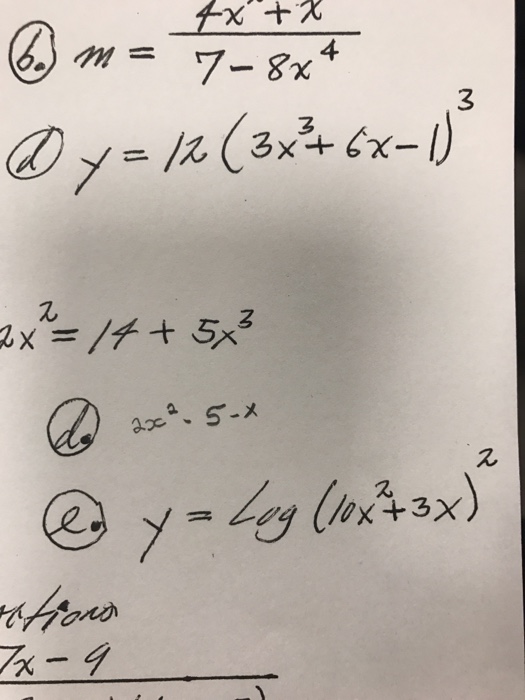 b. m = (4x + x) / (7 - 8x⁴)
d y = 12 (3x³ + 6x - 1)³
2x² = 14 + 5x³
d. 2x² - 5 - x
e. y = Log (10x² + 3x)²
7x - 9